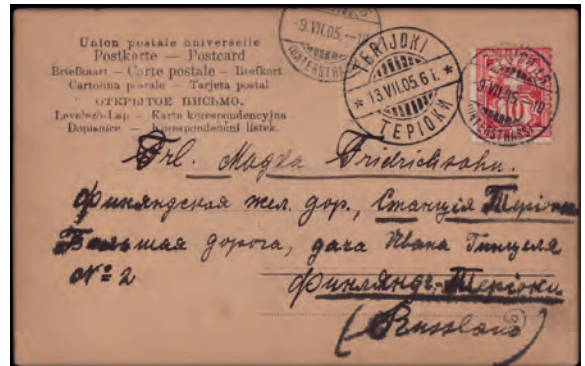 Union postale universelle
Postkarte — Postcard
Briefkaart – Carte postale – Brefkort
Cartolina postale – Tarjeta postal
ОТКРЫТОЕ ПИСЬМО.
Levelező-Lap – Karta korespondencyjna
Dopisnice – Korespondenční lístek.
-9.VII.05.-10
TERIJOKI
* 13.VII.05. 6 i. *
ТЕРІОКИ
-9.VII.05.-10
10
Frl. Magda Fridrichsohn.
Финляндская жел. дор., Станція Теріоки
Большая дорога, дача Ивана Гинцеля
№ 2
Финлянд. Теріоки
(Russland)